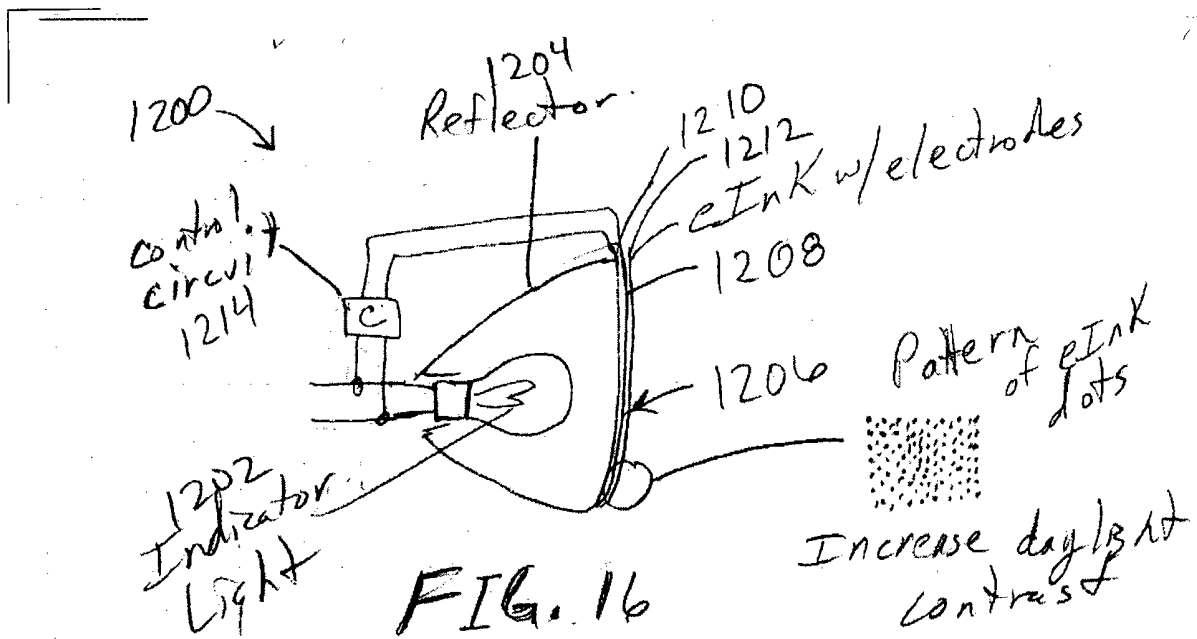 1200
1204
Reflector
1210
1212
eInk w/electrodes
control
circuit
1214
C
1208
1206
Pattern
of eInk
dots
1202
Indicator
Light
Increase daylight
contrast
FIG. 16